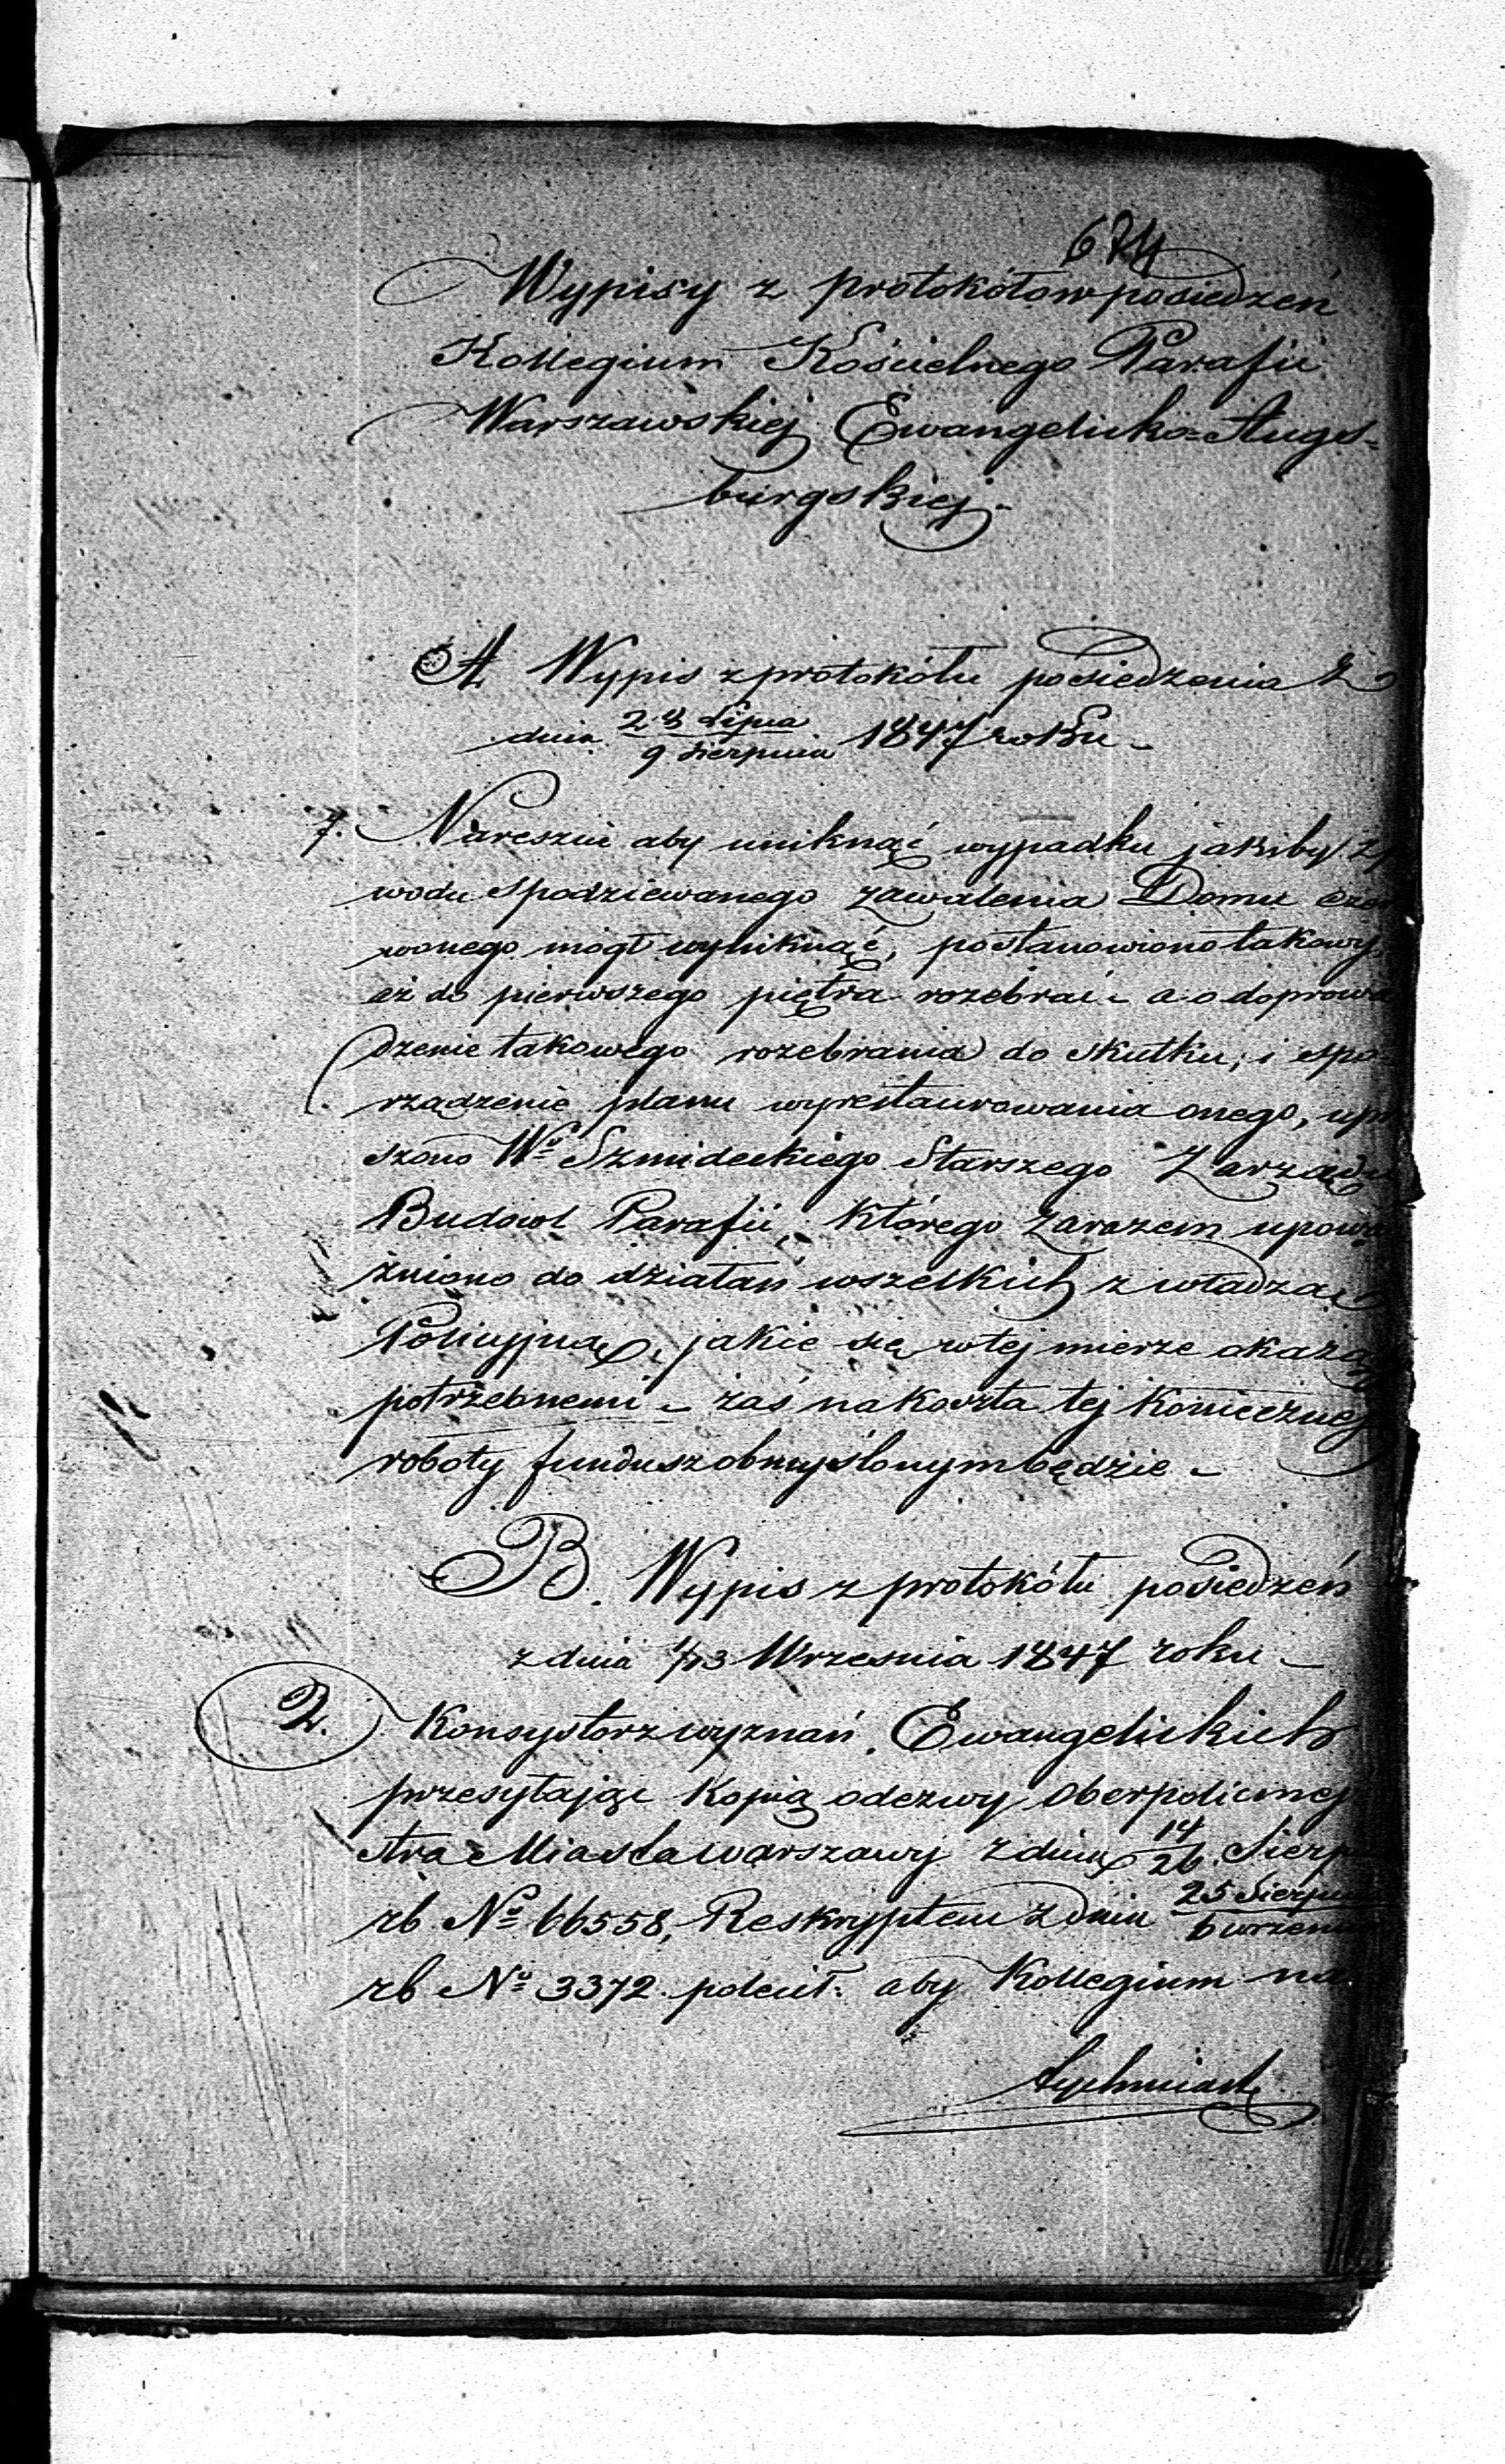 674
Wypisy z protokołow posiedzeń
Kollegium Kościelnego Parafii
Warszawskiej Ewangelicko=Augs=
burgskiej.
A. Wypis z protokółu posiedzenia z
dnia 28 Lipca / 9 Sierpnia 1847 roku –
7. Nareszcie aby uniknąć wypadku jakiby z p
wodu spodziewanego zawalenia Domu czer
wonego mógł wyniknąć, postanowiono takowy
aż do pierwszego piętra rozebrać – a o doprowa
dzenie takowego rozebrania do skutku, i spo=
rządzenie planu wyrestaurowania onego, upro
szono Wo Szmideckiego Starszego Zarządu
Budowl Parafii, którego zarazem upowa
żniono do działań wszelkich z władzą
Policyjną, jakie się w tej mierze okażą
potrzebnemi – zaś na koszta tej koniecznej
roboty fundusz obmyślonym będzie –
B. Wypis z protokółu posiedzeń
z dnia 1/13 Wrzesnia 1847 roku –
2. Konsystorz wyznań Ewangelickich
przesyłając kopią odezwy Oberpolicmej
stra Miasta Warszawy z dnia 14/26 Sierp
rb No 66558, Reskryptem z dnia 25 Sierpnia / 6 wrzesnia
rb No 3372 polecił aby Kollegium na